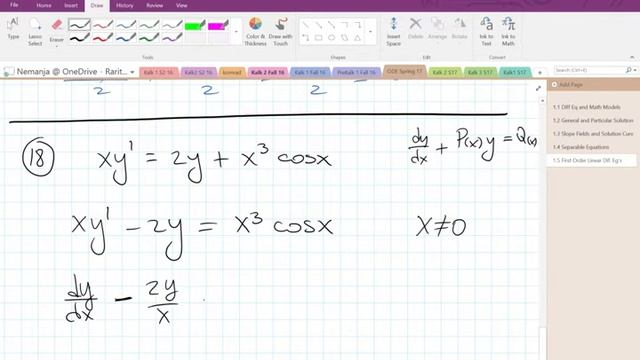 File Home Insert Draw History Review View
Type Lasso Select Insert Space Eraser
Color & Thickness Draw with Touch Shapes Ink to Text Ink to Math
Tools Shapes Convert
Nemanja @ OneDrive - Rarit... Kalk 1 S2 16 Kalk2 S2 16 iconrad Kalk 2 Fall 16 Kalk 1 Fall 16 Prettalk 1 Fall 16 ODE Spring 17 Kalk 2 S17 Kalk 3 S17 Kalk1 S17
Search (Ctrl+E)
Add Page
1.1 Diff Eq and Math Models
1.2 General and Particular Solution
1.3 Slope Fields and Solution Curv
1.4 Separable Equations
1.5 First Order Linear Dif. Eq's
2 2 2
18 xy' = 2y + x³ cosx dy/dx + P(x)y = Q(x)
xy' - 2y = x³ cosx x≠0
dy/dx - 2y/x